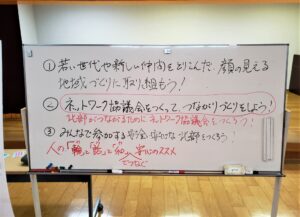 ① 若い世代や新しい仲間をとりこんだ、顔の見える
地域づくりに取り組もう!
② ネットワーク協議会をつくって、つながりづくりをしよう!
北部がつながるためにネットワーク協議会をつくろう!
③ みんなで参加する安全、安心な北部をつくろう!
人の「輪」と「話」と「和」 安心のススメ
でつなぐ